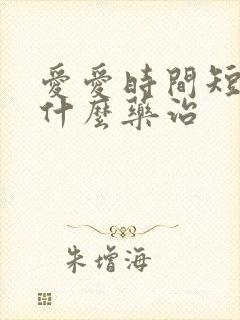 愛愛時間短
什麼藥治
朱增海